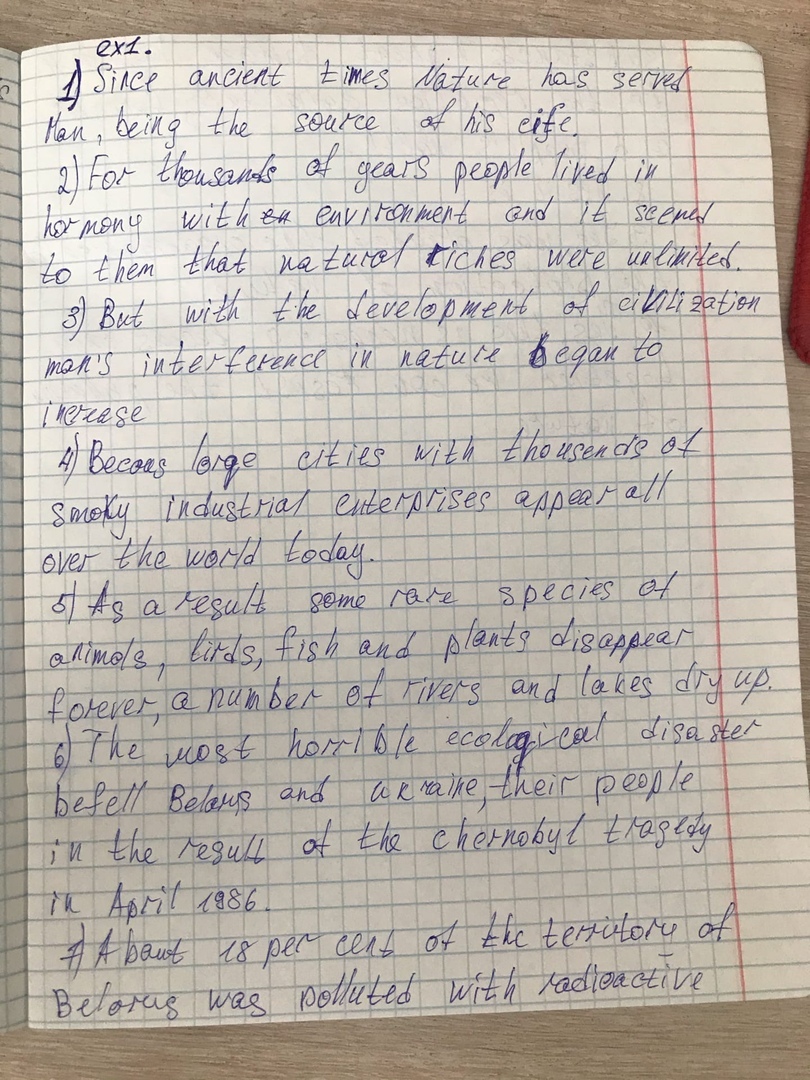 ex1.
1) Since ancient times Nature has served
Man, being the source of his eife.
2) For thousands of years people lived in
hormony with environment and it seemed
to them that natural riches were unlimited.
3) But with the development of civilization
man's interference in nature began to
increase
4) Becous large cities with thousends of
smoky industrial enterprises appear all
over the world today.
5) As a result some rare species of
animals, birds, fish and plants disappear
forever, a number of rivers and lakes dry up.
6) The most horrible ecological disaster
befell Belarus and ukraine, their people
in the result of the chernobyl tragedy
in April 1986.
7) About 18 per cent of the territory of
Belarus was polluted with radioactive